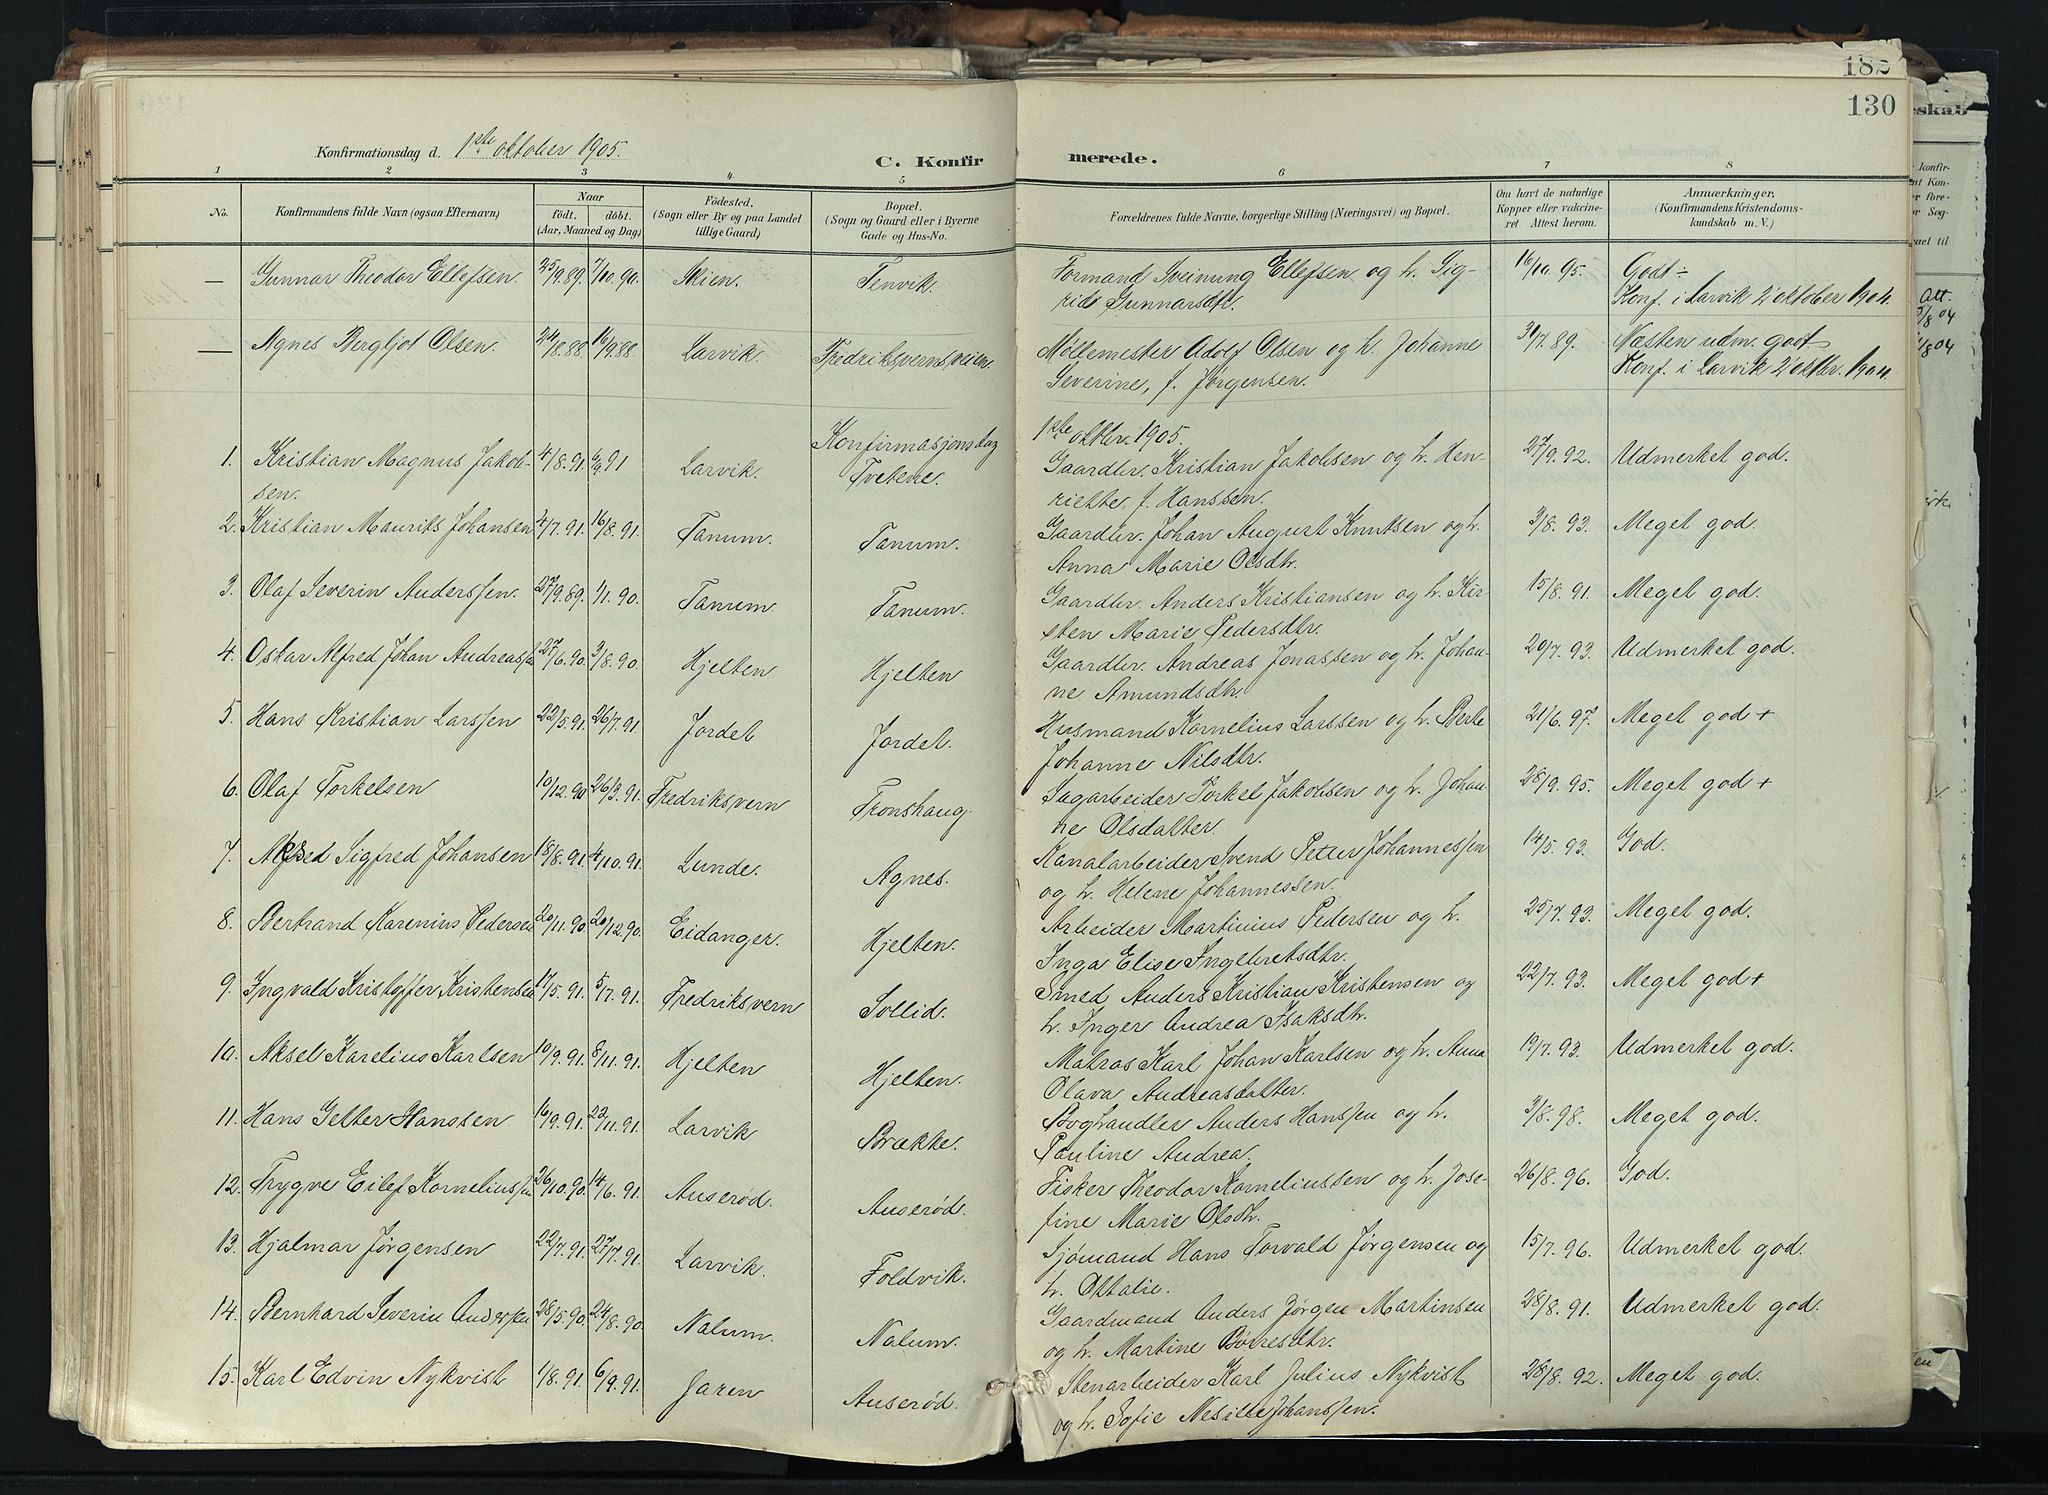 182
130
Konfirmationsdag d. 1ste oktober 1905.
C. Konfir
merede.
1 2 3 4 5 6 7 8
No.
Konfirmandens fulde Navn (ogsaa Efternavn)
Naar
födt. döbt.
(Aar, Maaned og Dag)
Födested.
(Sogn eller By og paa Landet
tillige Gaard)
Bopæl.
(Sogn og Gaard eller i Byerne
Gade og Hus-No.
Forældrenes fulde Navne, borgerlige Stilling (Næringsvei) og Bopæl.
Om havt de naturlige
Kopper eller vakcine-
ret. Attest herom.
Anmærkninger.
(Konfirmandens Kristendoms-
kundskab m. V.)
— Gunnar Theodor Ellefsen. 25/9.89. 7/10.90. Skien. Tenvik. Formand Sveinung Ellefsen og h. Sig- 16/10.95. Godt ÷
rid Gunnarsdtr. Konf. i Larvik 2 oktober 1904.
— Agnes Bergljot Olsen. 24/8.88. 16/9.88. Larvik. Fredriksvernsveien. Møllemester Adolf Olsen og h. Johanne 31/7.89. Næsten udm. godt
Severine, f. Jørgensen. Konf. i Larvik 2 oktbr. 1904.
Konfirmasjonsdag 1ste oktbr. 1905.
1. Kristian Magnus Jakob- 4/8.91. 6/9 91 Larvik. Tvetene. Gaardbr. Kristian Jakobsen og h. Hen- 27/9.92. Udmerket god.
sen. riette, f. Hanssen.
2. Kristian Maurits Johansen 4/7.91. 16/8.91. Tanum. Tanum. Gaardbr. Johan August Knutsen og h. 3/8.93. Meget god.
Anna Marie Olsdtr.
3. Olaf Severin Anderssen. 27/9.89. 1/1.90. Tanum Tanum. Gaardbr. Anders Kristiansen og h. Kir- 15/8.91. Meget god.
sten Marie Pedersdtr.
4. Oskar Alfred Johan Andreassen 27/6.90. 3/8.90. Hjelten Hjelten Gaardbr. Andreas Jonassen og h. Johan- 20/7.93. Udmerket god.
ne Amundsdtr.
5. Hans Kristian Larssen 22/5.91. 26/7.91. Jordet Jordet. Husmand Kornelius Larssen og h. Berte 21/6.97. Meget god +
Johanne Nilsdtr.
6. Olaf Torkelsen 10/12.90 26/3.91. Fredriksvern Tronshaug. Sagarbeider Torkel Jakobsen og h. Johan- 28/9.95. Meget god +
ne Olsdatter.
7. Alfred Sigfred Johansen 18/8.91. 4/10.91. Lunde. Agnes. Kanalarbeider Svend Petter Johannessen 14/5.93. God.
og h. Helene Johannessen.
8. Bertrand Karenius Pedersen 20/11.90. 20/12.90. Eidanger. Hjelten. Arbeider Martinius Pedersen og h. 25/7.93. Meget god.
Inga Elise Ingebretsdtr.
9. Ingvald Kristoffer Kristensen 17/5.91. 5/7.91. Fredriksvern Sollid. Smed Anders Kristian Kristensen og 22/7.93. Meget god +
h. Inger Andrea Isaksdtr.
10. Aksel Karelius Karlsen 10/9.91. 8/11.91. Hjelten Hjelten. Matros Karl Johan Karlsen og h. Anna 19/7.93. Udmerket god.
Olava Andreasdatter.
11. Hans Getter Hanssen 16/9.91. 22/11.91. Larvik Brække. Boghandler Anders Hanssen og h. 3/8.98. Meget god.
Pauline Andrea.
12. Trygve Eilef Korneliussen 26/10.90. 14/6.91. Auserød. Auserød. Fisker Theodor Korneliussen og h. Jose- 26/8.96. God.
fine Marie Olsdtr.
13. Hjalmar Jørgensen 22/7.91. 27/7.91. Larvik. Foldvik. Sjømand Hans Torvald Jørgensen og 15/7.96. Udmerket god.
h. Ottalie.
14. Bernhard Severin Anderssen 28/5.90. 24/8.90. Nalum. Nalum. Gaardmand Anders Jørgen Martinsen 28/8.91. Udmerket god.
og h. Martine Børresdtr.
15. Karl Edvin Nykvist 1/8.91. 6/9.91. Jaren Auserød. Stenarbeider Karl Julius Nykvist 28/8.92. Meget god.
og h. Sofie Johanssen.